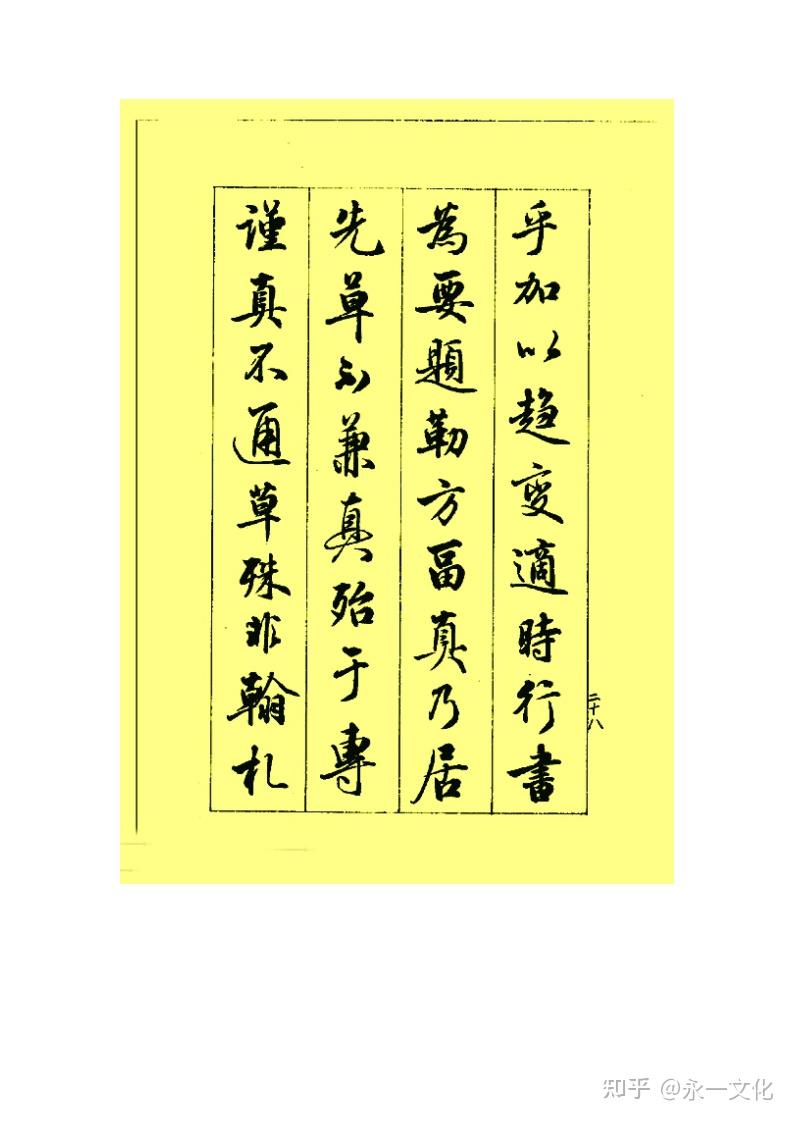 乎加以趋變適時行書
為要題勒方畐真乃居
先草不兼真殆于專
謹真不通草殊非翰札
二十八
知乎 @永一文化